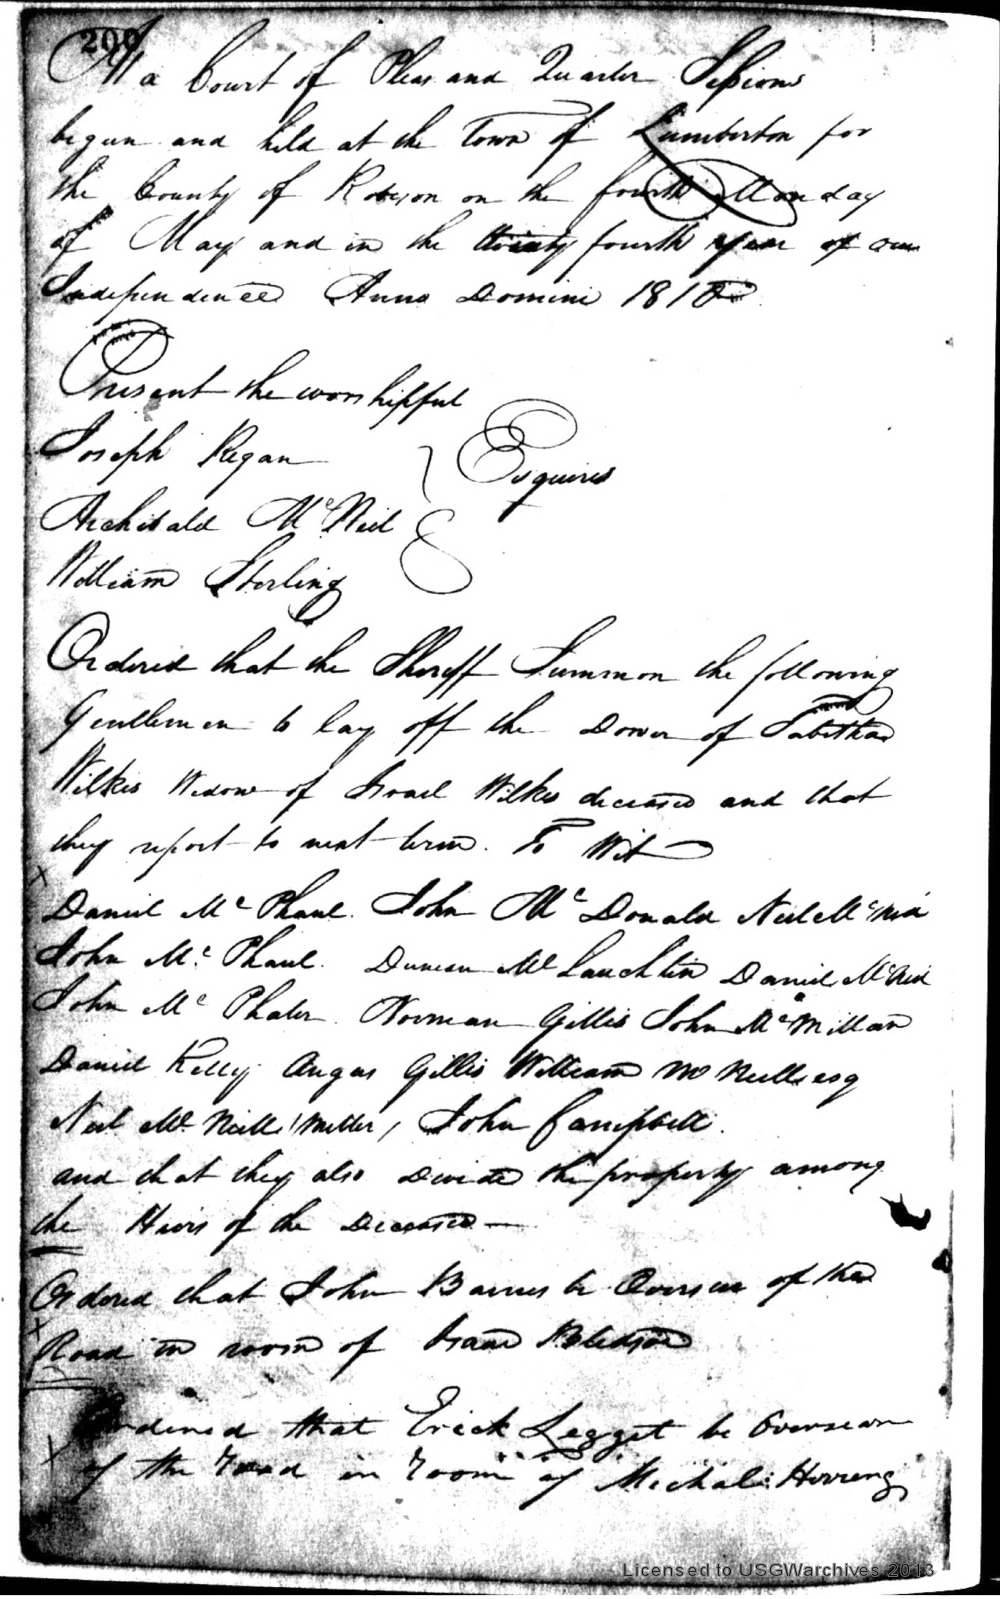 200
At a Court of Pleas and Quarter Sessions
begun and held at the Town of Lumberton for
the County of Robeson on the fourth Monday
of May and in the thirty fourth year of our
Independence Anno Domini 1810
Present the worshipful
Joseph Regan
Esquires
Archibald McNeil
William Sterling
Ordered that the Sheriff Summon the following
Gentlemen to lay off the Dower of Tabitha
Wilkes Widow of Israel Wilkes deceased and that
they report to next term. To Wit
Daniel McPhaul. John McDonald Neil McNeil
John McPhaul. Duncan McLauchlin Daniel McNeil
John McPhater. Norman Gillis John McMillan
Daniel Kelly Angus Gillis William McNeill esq
Neil McNeill (Miller) John Campbell.
and that they also Devide the property among
the Heirs of the Deceased
Ordered that John Barnes be Overseer of the
Road in room of Isaac Bledsoe
Ordered that Erick Legget be Overseer
of the Road in room of Michal Herreng
Licensed to USGWarchives 2013